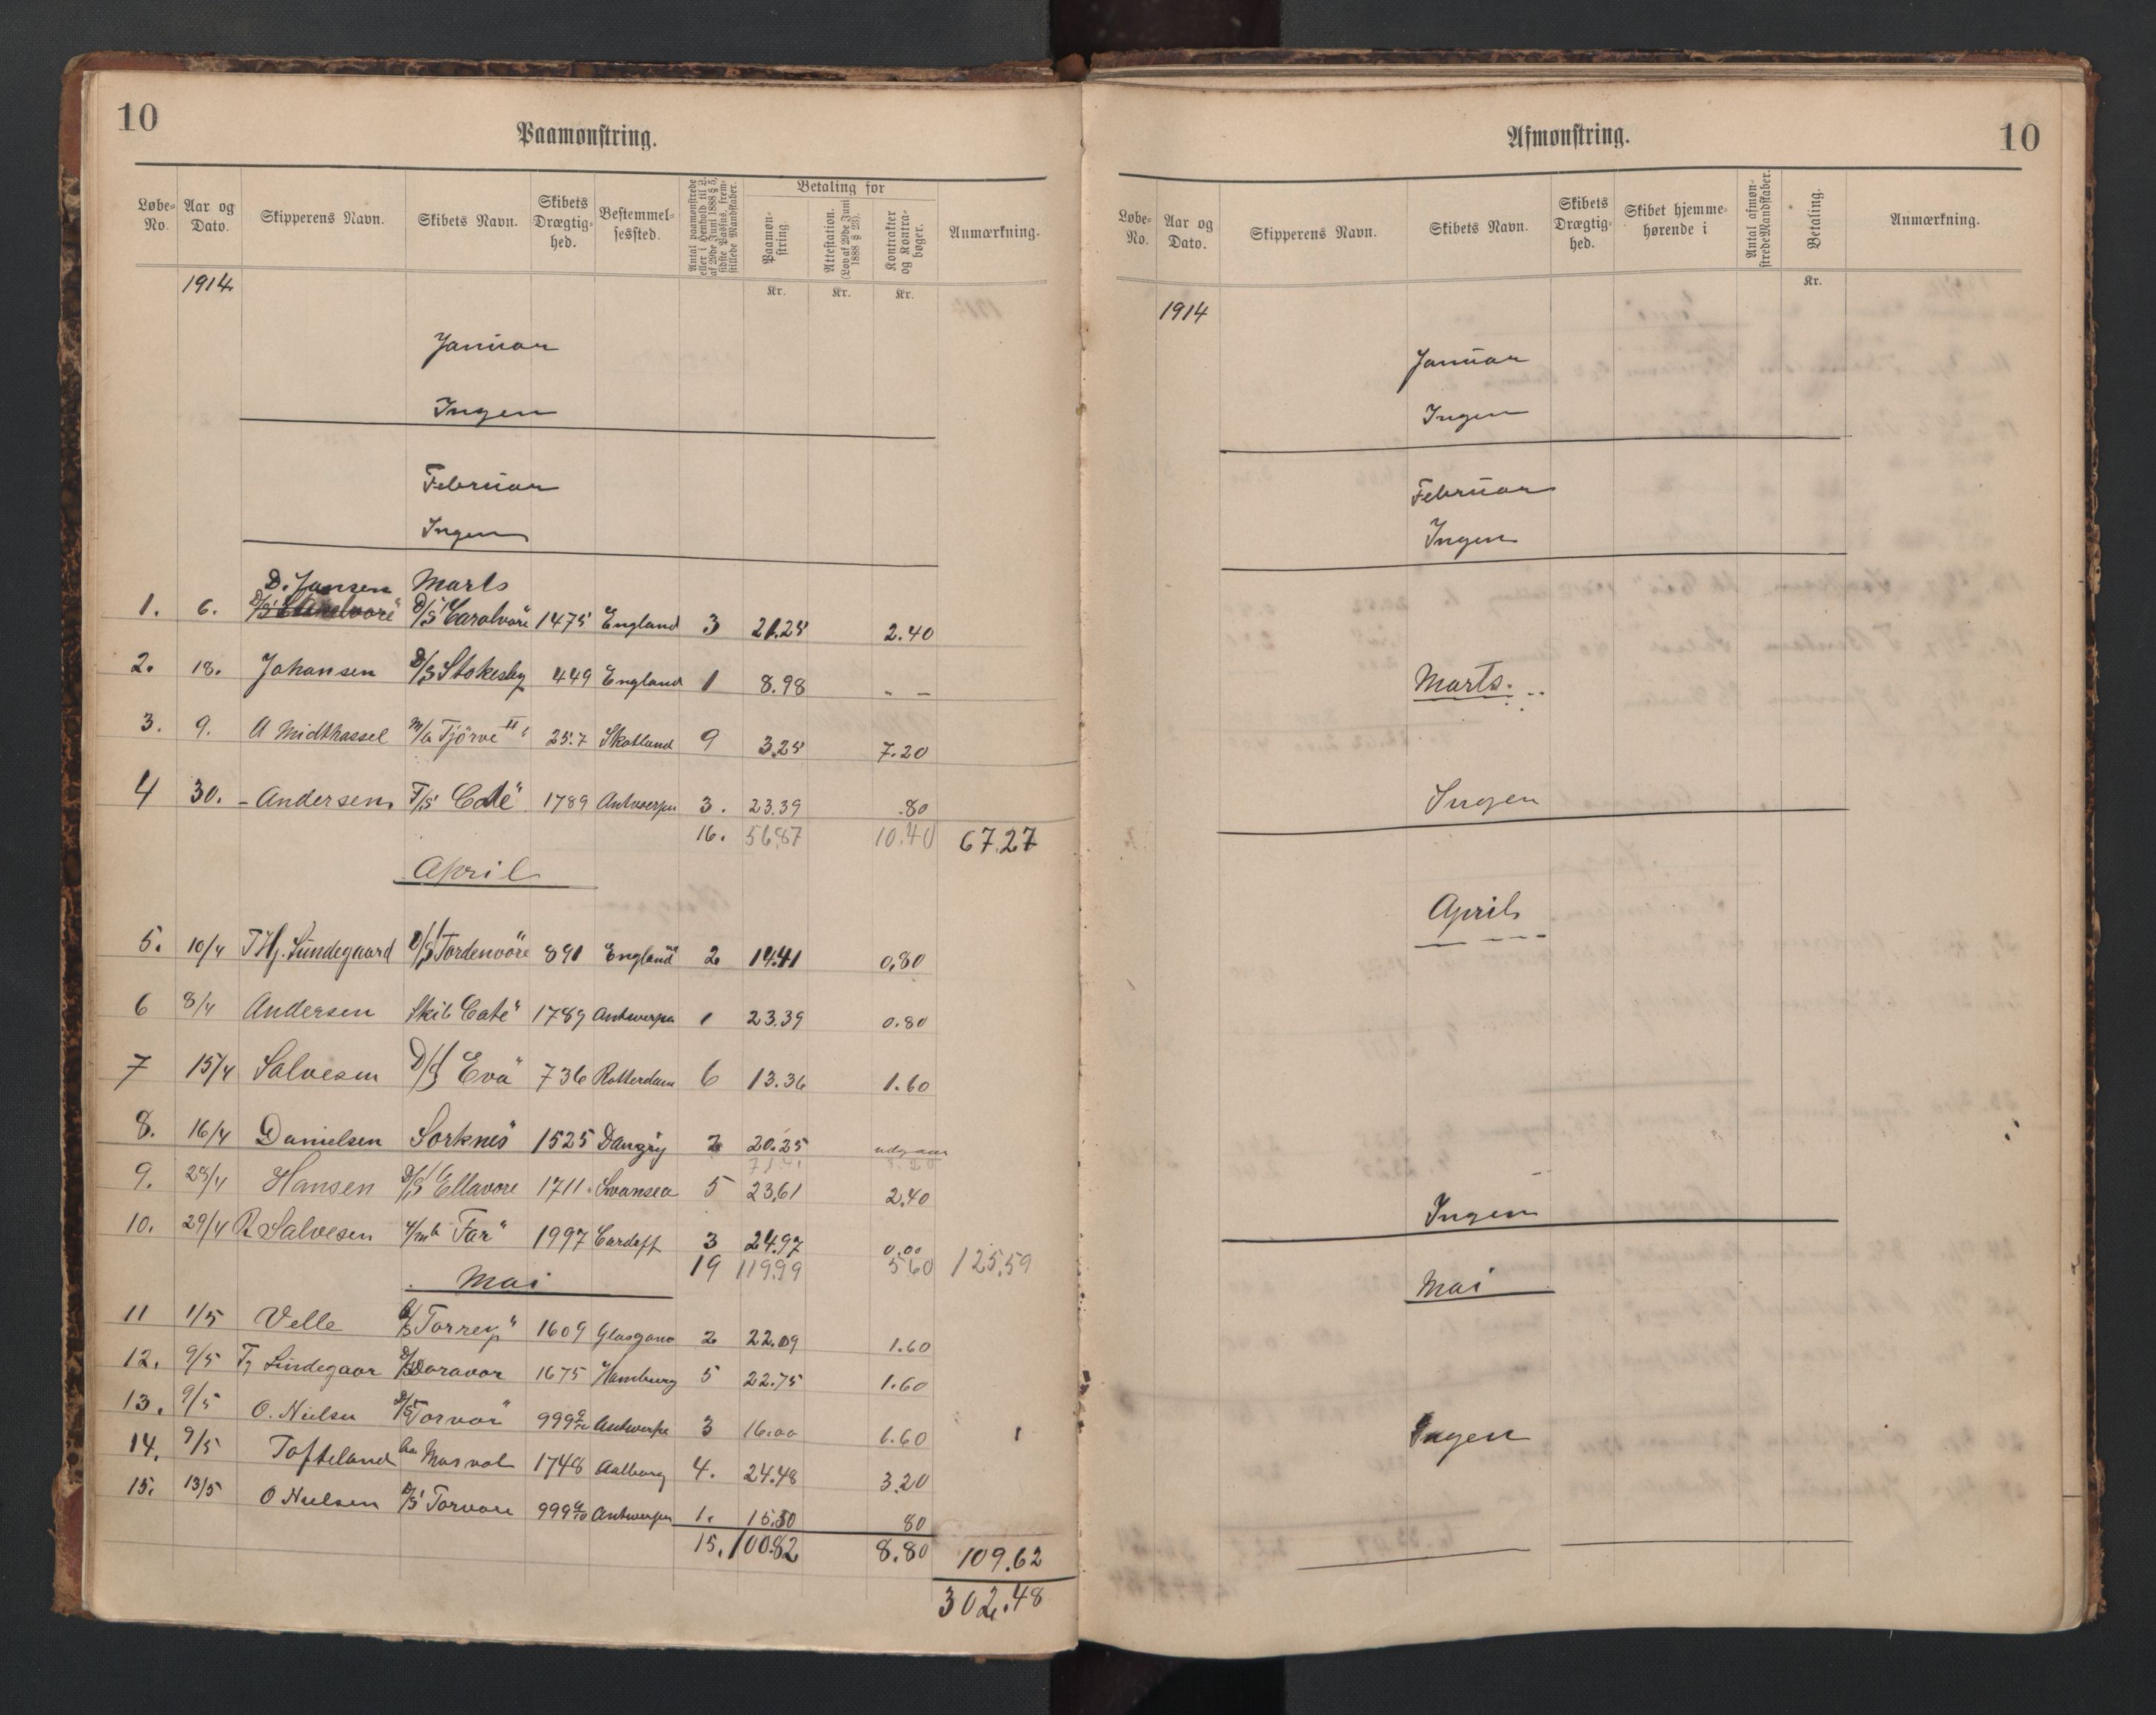 10
Paamønstring.
Løbe-No. Aar og Dato. Skipperens Navn. Skibets Navn. Skibets Drægtig-hed. Bestemmel-sessted. Antal paamønstrede eller i Henhold til L. af 29de Juni 1888 § 5, sidste Passus, frem-stillede Mandskaber. Betaling for Paamøn-string. Attestation. (Lov af 29de Juni 1888 § 23). Kontrakter og Kontra-bøger. Anmærkning.
Kr. Kr. Kr.
1914
Januar
Ingen
Februar
Ingen
D. Jansen Marts
1. 6. D/S "Carolvore" 1475 England 3 21.25 2.40
2. 18. Johansen D/S Stokesby 449 England 1 8.98 " –
3. 9. A Midthassel M/k Tjörve II 25.7 Skotland 9 3.25 7.20
4 30. – Andersen F/S "Cate" 1789 Antwerpen 3. 23.39 .80
16. 56.87 10.40 67.27
April
5. 10/4 T Hj. Lundegaard D/S Tordenvore 891 England 2 14.41 0.80
6 8/4 Andersen Skib "Cate" 1789 Antwerpen 1 23.39 0.80
7 15/4 Salvesen D/S "Eva" 736 Rotterdam 6 13.36 1.60
8. 16/4 Danielsen Sorknes 1525 Danzig 2 20.25 udgaar
9. 28/4 Hansen D/S "Ellavore 1711 Swansea 5 23.61 2.40
10. 29/4 R Salvesen 4/m b "Far" 1997 Cardiff 3 24.97 0.00
19 119.99 5.60 125.59
Mai
11 1/5 Velle "Torrey" 1609 Glasgow 2 22.09 1.60
12. 9/5 Tj Lindegaar D/S Doravor 1675 Hamburg 5 22.75 1.60
13. 9/5 O. Nielsen D/S "Torvor" 999 9/10 Antwerpen 3 16.00 1.60
14. 9/5 Tofteland Masvol 1748 Aalborg 4. 24.48 3.20
15. 13/5 O Nielsen D/S Torvore 999 9/10 Antwerpen 1. 15.50 80
15. 100.82 8.80 109.62
302.48
Afmønstring.
10
Løbe-No. Aar og Dato. Skipperens Navn. Skibets Navn. Skibets Drægtig-hed. Skibet hjemme-hørende i Antal afmøn-strede Mandskaber. Betaling. Anmærkning.
Kr.
1914
Januar
Ingen
Februar
Ingen
Marts.
Ingen
April
Ingen
Mai
Ingen